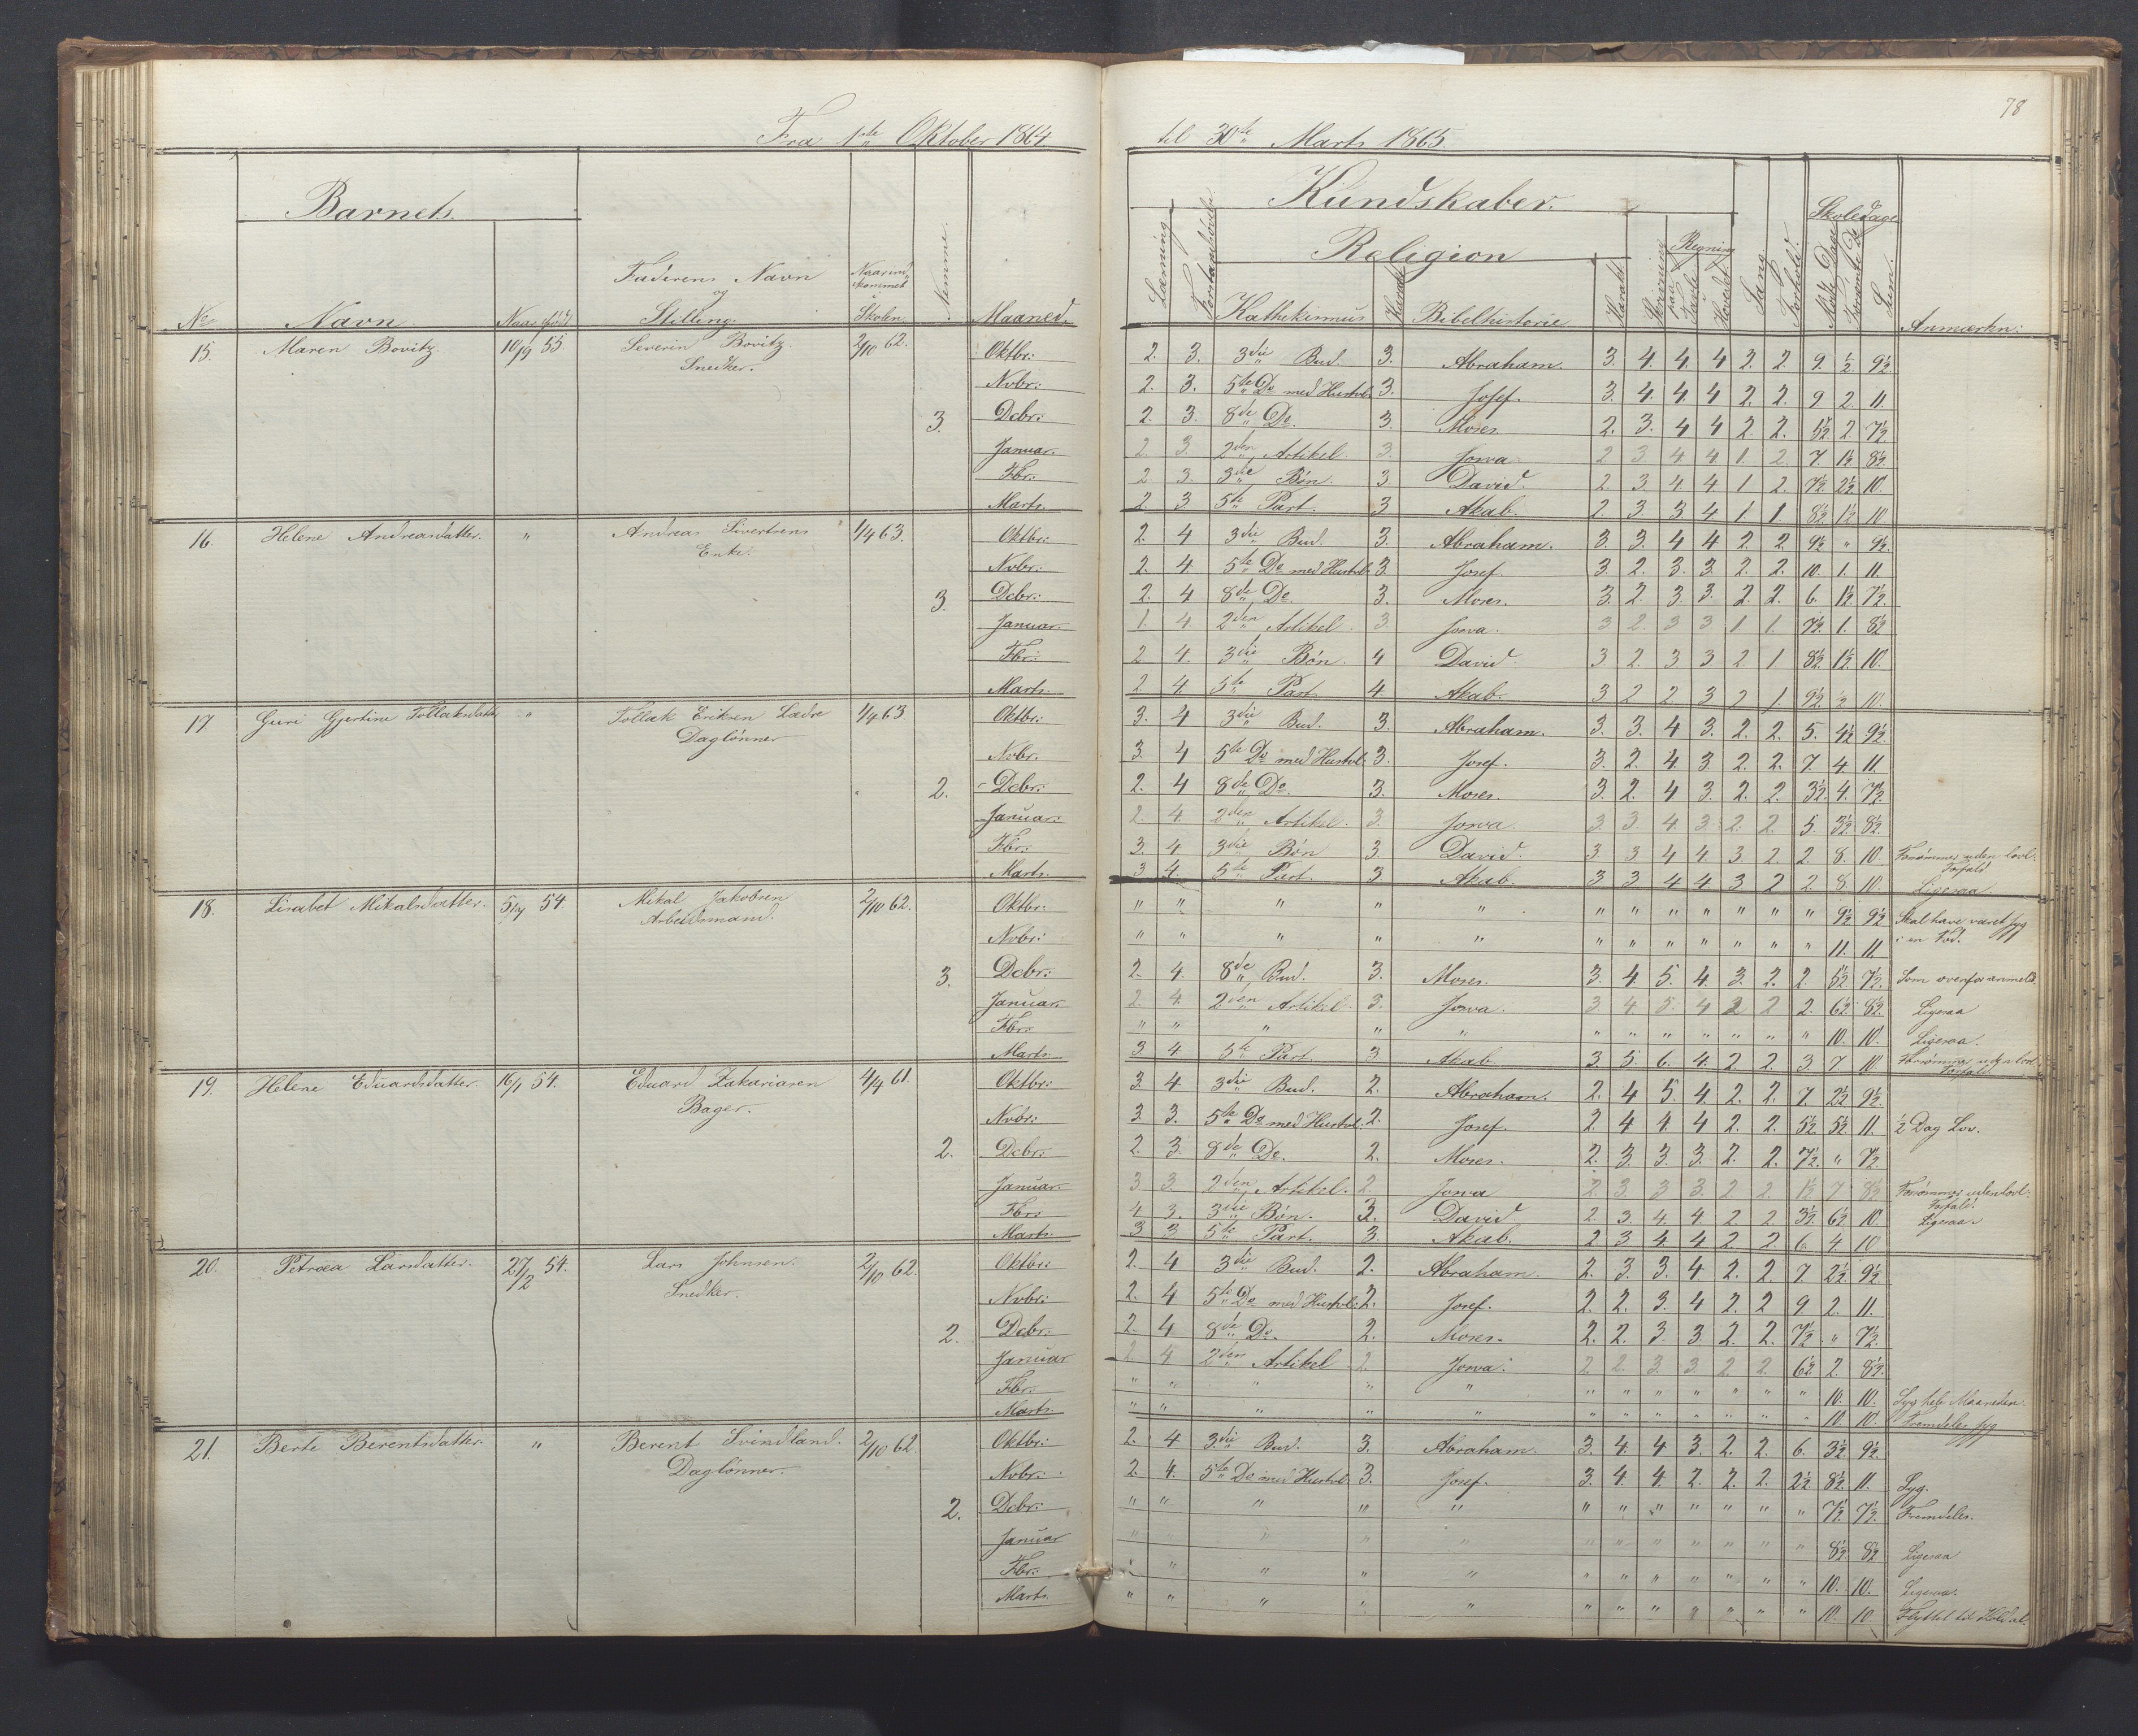 78
Fra 1ste Oktober 1864 til 30te Marts 1865.
Barnets
Kundskaber.
Skoledage
Religion
Regning
No
Navn
Naar født
Faderens Navn
og
Stilling.
Naar ind-
kommet
i
Skolen
Nemme.
Maaned.
Læsning
Kathekismus
Karakt
Bibelhistorie
Karakt
Skrivning
paa
Tavle
Hovedet
Sang.
Forhold.
Mødte Dage
Forsømte Do
Sum.
Anmærkn:
15. Maren Bovitz. 10/9 55. Severin Bovitz. 2/10 62. Oktbr: 2. 3. 3die Bud. 3. Abraham. 3. 4. 4. 4 2. 2. 9. ½ 9½
Snedker.
Nvbr: 2. 3. 5te Do med Hustvl. 3. Josef. 3. 4. 4. 4 2. 2. 9 2. 11.
3. Dcbr: 2. 3. 8de Do. 3. Moses. 2. 3. 4 4 2. 2. 5½ 2. 7½
Januar. 2. 3. 2den Artikel. 3. Josva. 2 3 4. 4 1. 2. 7. 1½ 8½
Fbr: 2 3. 3die Bøn. 3 David. 2 3. 4. 4 1 2. 7½ 2½ 10.
Marts. 2. 3 5te Part. 3 Akab. 2 3. 3 4 1 1. 8½ 1½ 10
16. Helene Andreasdatter. " Andreas Sivertsens 1/4 63. Oktbr: 2. 4 3die Bud. 3. Abraham. 3. 3. 4 4 2. 2. 9½ " 9½
Enke.
Nvbr: 2. 4. 5te Do med Hustvl. 3. Josef. 3 2. 3. 3. 2. 2. 10. 1. 11.
3. Dcbr: 2. 4 8de Do. 3. Moses. 3. 2. 3 3. 2. 2. 6. 1½ 7½
Januar. 1. 4. 2den Artikel. 3. Josva. 3 2. 3 3 1 1. 7½ 1. 8½
Fbr: 2 4. 3die Bøn. 4 David 3 2. 3 3 2 1 8½ 1½ 10.
Marts. 2 4. 5te Part 4. Akab. 3 2 2. 3 2 1. 9½ ½ 10.
17 Guri Gjertine Tollaksdatter " Tollak Eriksen Ladre 1/4 63. Oktbr: 3. 4 3die Bud. 3. Abraham. 3. 3. 4 3. 2. 2. 5. 4½ 9½
Daglønner
Nvbr. 3. 4 5te Do med Hustvl. 3. Josef. 3. 2 4. 3. 2. 2. 7. 4. 11.
2. Dcbr: 2. 4 8de Do. 3. Moses. 3. 2. 4 3. 2. 2. 3½ 4. 7½
Januar: 2. 4. 2den Artikel. 3. Josva. 3. 3. 4. 3. 2. 2. 5. 3½ 8½
Fbr: 3. 4 3die Bøn 3. David. 3 3 4 4. 3. 2. 2. 8. 10. Forsømmer uden lovl:
Forfald.
Marts. 3 4. 5te Part. 3 Akab. 3 3 4 4 3 2 2. 8. 10. Ligesaa
18. Lisabet Mikalsdatter. 54. Mikal Jakobsen 2/10 62. Oktbr: " " " " " " " " " " " " 9½ 9½ Skal have været syg
Arbeidsmand.
Nvbr: " " " " " " " " " " " " 11. 11. i en Fod.
3. Dcbr: 2. 4. 8de Bud. 3. Moses. 3. 4. 5. 4. 3. 2. 2. 5½ 7½ Som ovenfor anmeldt
Januar. 2. 4. 2den Artikel. 3. Josva. 3. 4. 5. 4 2 2 2. 6½ 8½ Ligesaa
Fbr: " " " " " " " " " " " " 10. 10. Ligesaa.
Marts. 3 4 5te Part. 3 Akab. 3. 5. 6. 4. 2 2. 3 7 10 Forsømmer uden lovl.
Forfald
19. Helene Eduardsdatter. 16/1 54. Eduard Zakariasen 4/4 61. Oktbr: 3. 4. 3die Bud. 2. Abraham. 2. 4 5. 4. 2. 2. 7. 2½ 9½
Bager.
Nvbr: 3. 3. 5te Do med Hustvl. 2. Josef. 2. 4 4. 4 2. 2. 5½ 5½ 11. ½ Dag Lov.
2. Dcbr: 2. 3. 8de Do. 2. Moses. 2. 3. 3. 3. 2. 2. 7½ " 7½
Januar. 3 3. 2den Artikel. 2. Josva 2. 3. 3 3. 2 2. 1½ 7 8½ Forsømmer uden lovl:
Forfald.
Fbr: 4 3. 3die Bøn. 3. David 2. 3. 4. 4 2. 2. 3½ 6½ 10. Ligesaa.
Marts. 3 3 5te Part. 3. Akab. 2 3 4. 4 2 2 6. 4. 10
20. Petrea Larsdatter. 27/2 54. Lars Johnsen. 2/10 62. Oktbr: 2. 4 3die Bud. 2. Abraham. 2. 3. 3. 4 2. 2. 7. 2½ 9½
Snedker.
Nvbr: 2. 4. 5te Do med Hustvl. 2. Josef. 2. 2. 3. 4 2. 2 9. 2. 11.
2. Dcbr: 2. 4 8de Do. 2. Moses. 2. 2. 3 3. 2. 2. 7½ " 7½
Januar 2 4 2den Artikel 2 Josva. 2. 2. 3. 3 2 2. 6½ 2. 8½
Fbr. " " " " " " " " " " " " 10. 10. Syg hele Maaneden
Marts. " " " " " " " " " " " " 10. 10. Fremdeles syg
21. Berte Berentsdatter. " Berent Svindland. 2/10 62. Oktbr: 2. 4 3die Bud. 3. Abraham. 3. 4. 4 3. 2. 2. 6. 3½ 9½
Daglønner.
Nvbr: 2. 4. 5te Do med Hustvl. 3. Josef. 3. 4. 4. 2. 2. 2. 2½ 8½ 11. Syg.
2. Dcbr: " " " " " " " " " " " " 7½ 7½ Fremdeles.
Januar " " " " " " " " " " " " 8½ 8½ Ligesaa
Fbr: " " " " " " " " " " " " 10. 10. Ligesaa.
Marts. " " " " " " " " " " " " 10. 10. Flyttet til